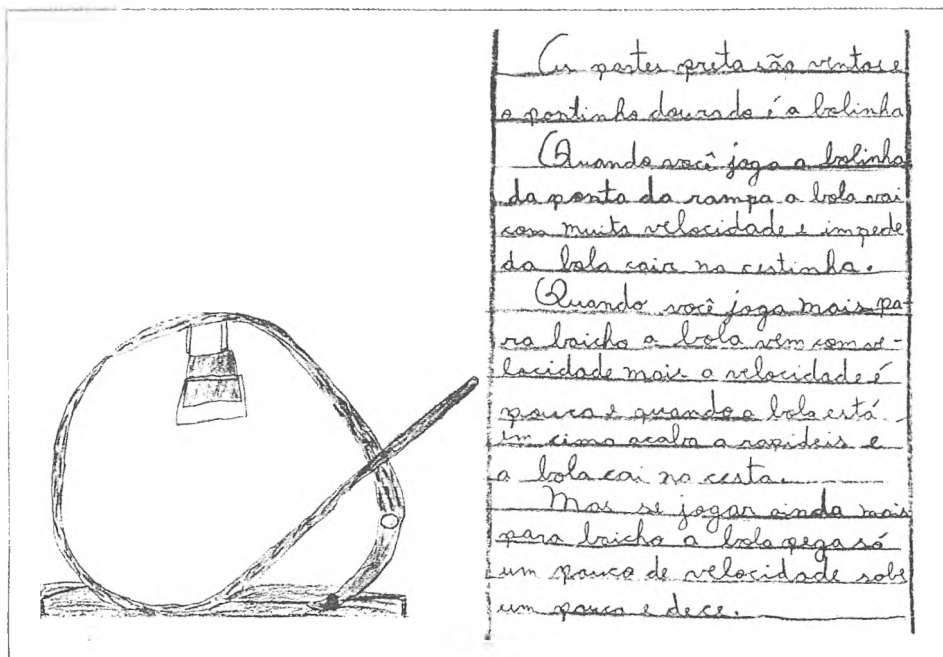 As partes preta são ventos e
o pontinho dourado é a bolinha
Quando você joga a bolinha
da ponta da rampa a bola vai
com muita velocidade e impede
da bola cair na cestinha.
Quando você joga mais pa-
ra baicho a bola vem com ve-
locidade mais a velocidade é
pouca e quando a bola está
im cima acaba a rapideis e
a bola cai na cesta.
Mas se jogar ainda mais
para baicho a bola pega só
um pouco de velocidade sobe
um pouco e dece.